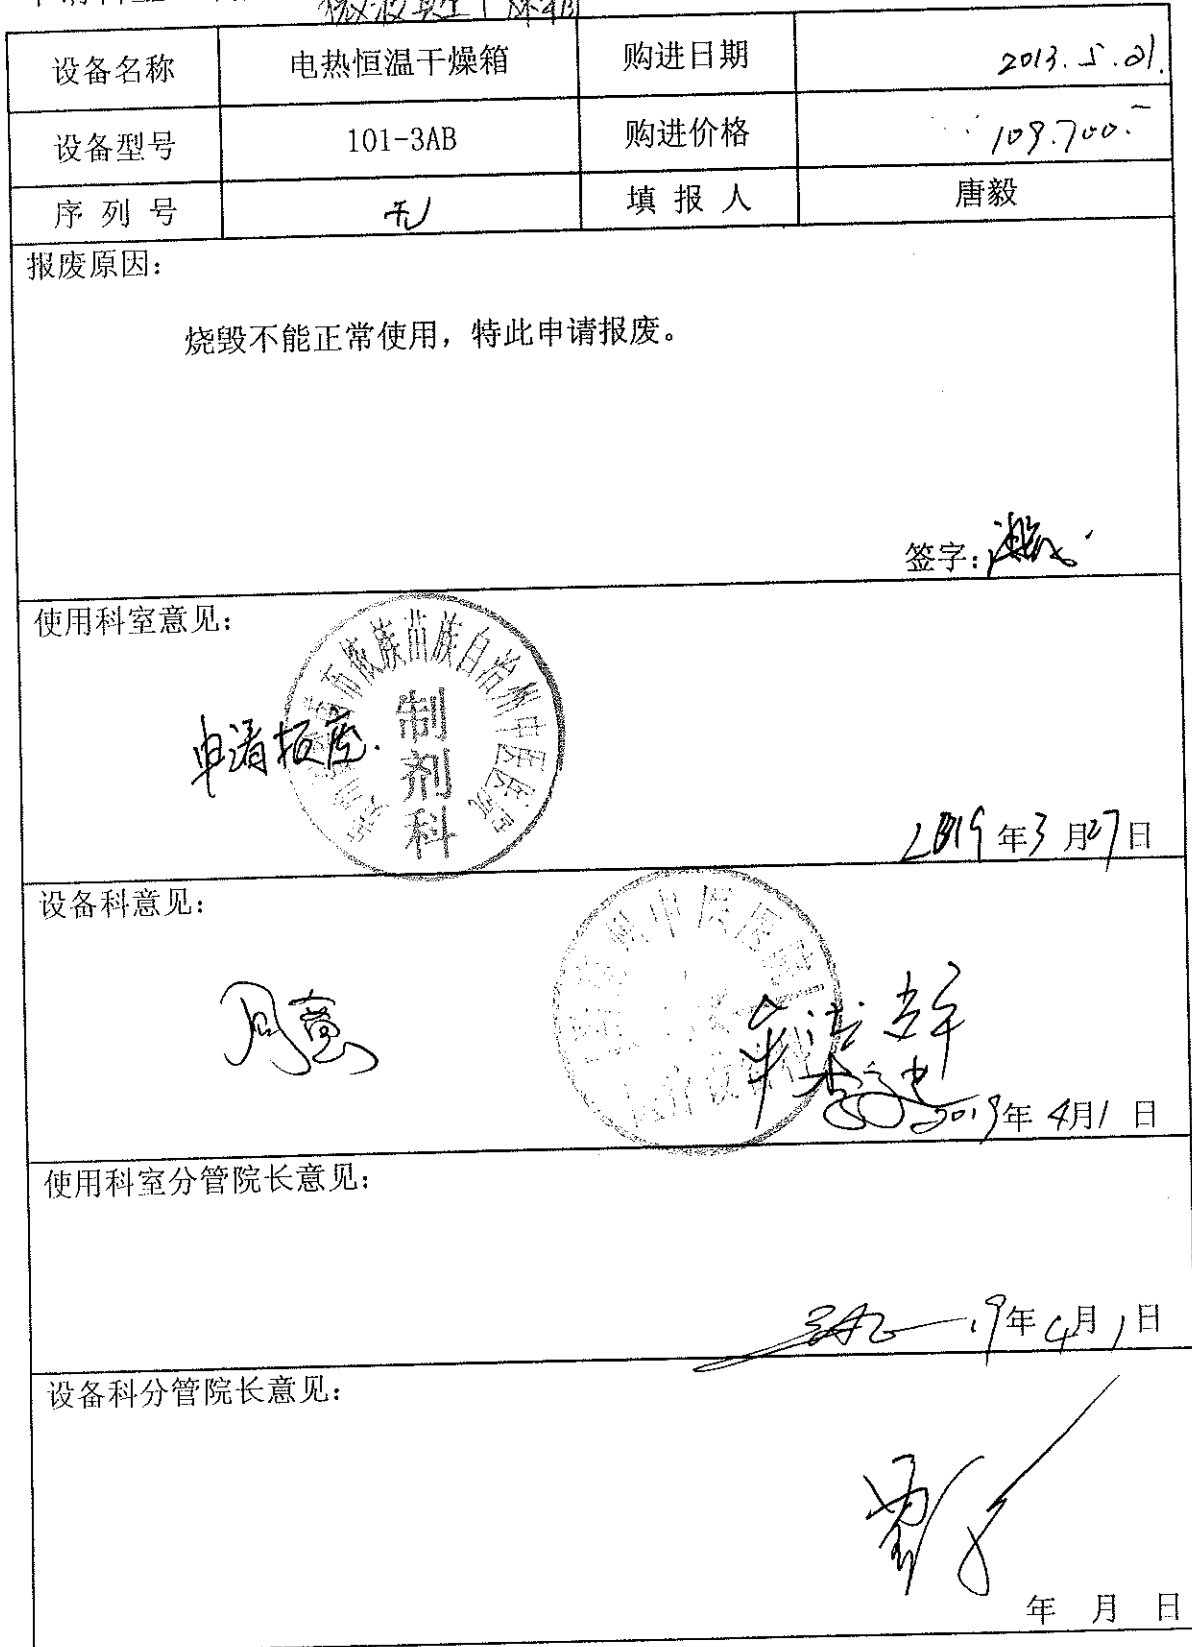 微波真空干燥箱
设备名称 电热恒温干燥箱 购进日期 2013.5.21.
设备型号 101-3AB 购进价格 109.700.-
序列号 无 填报人 唐毅
报废原因：
烧毁不能正常使用，特此申请报废。
签字：
使用科室意见：
布依族苗族自治州中医医院
制剂科
申请报废.
2019年3月27日
设备科意见：
州中医医院
同意
2019年4月1日
使用科室分管院长意见：
19年4月1日
设备科分管院长意见：
年 月 日